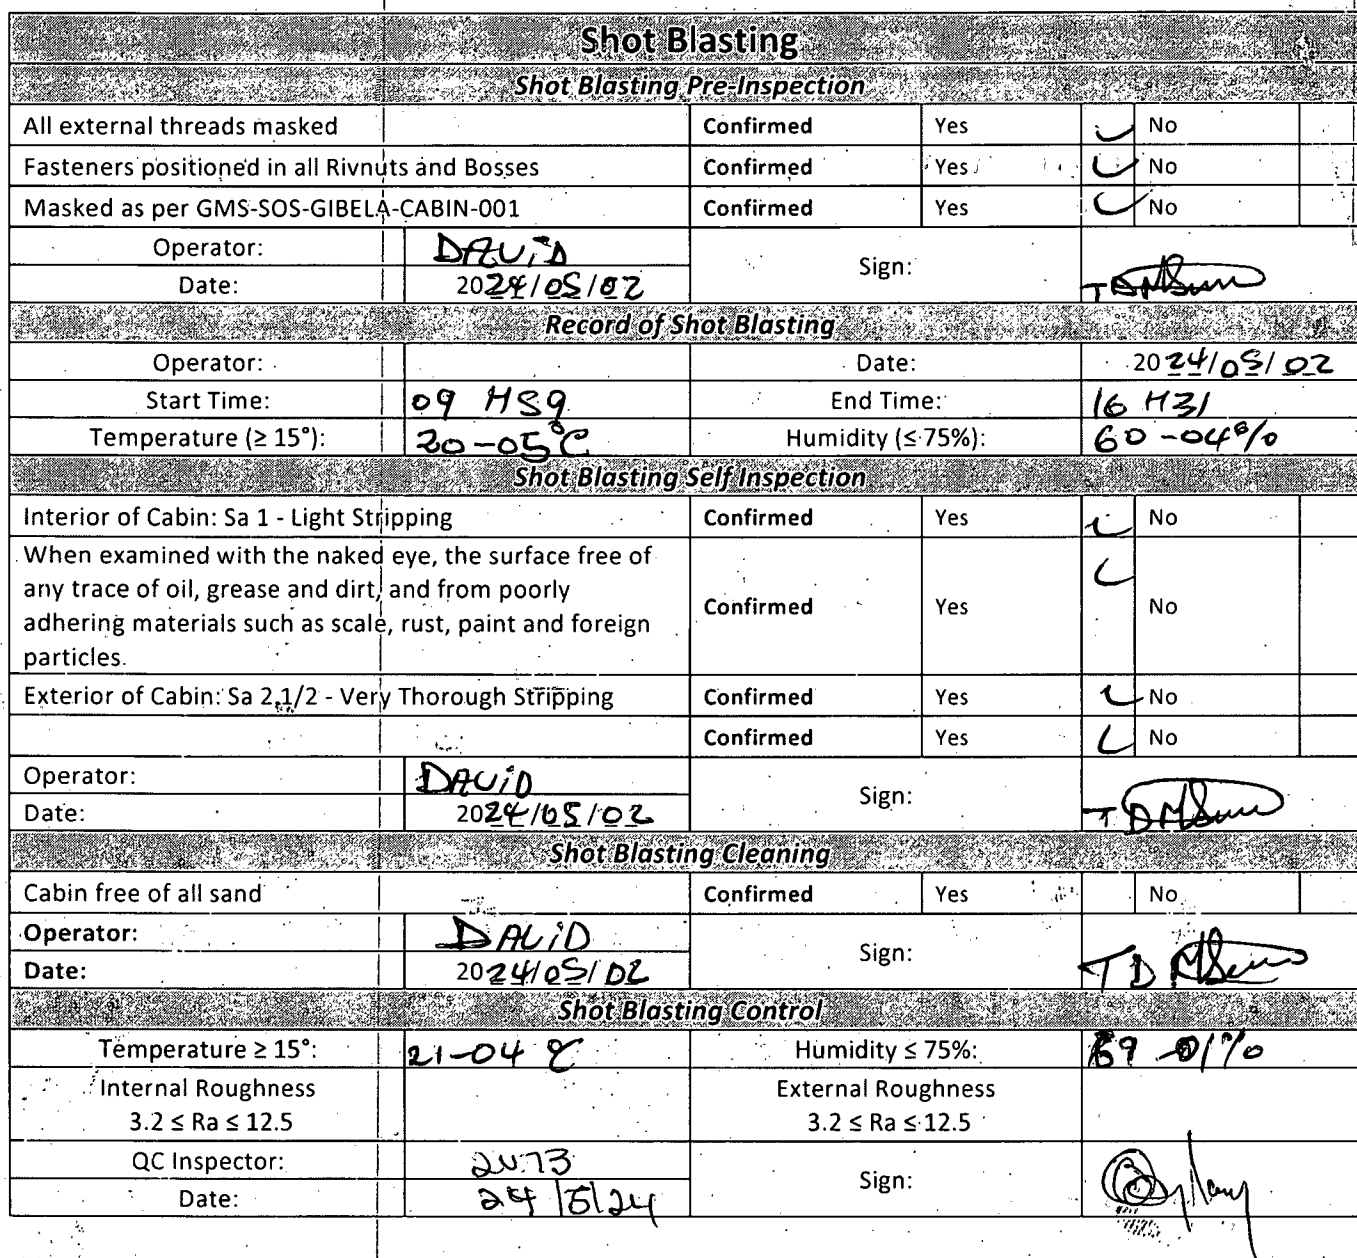 Shot Blasting
Shot Blasting Pre-Inspection
All external threads masked Confirmed Yes No
Fasteners positioned in all Rivnuts and Bosses Confirmed Yes No
Masked as per GMS-SOS-GIBELA-CABIN-001 Confirmed Yes No
Operator: DAViD Sign:
Date: 2024/05/02
Record of Shot Blasting
Operator: Date: 2024/05/02
Start Time: 09 H59 End Time: 16 H31
Temperature (≥ 15°): 20-05°C Humidity (≤ 75%): 60-04%
Shot Blasting Self Inspection
Interior of Cabin: Sa 1 - Light Stripping Confirmed Yes No
When examined with the naked eye, the surface free of
any trace of oil, grease and dirt, and from poorly
adhering materials such as scale, rust, paint and foreign
particles.
Confirmed Yes No
Exterior of Cabin: Sa 2,1/2 - Very Thorough Stripping Confirmed Yes No
Confirmed Yes No
Operator: DAViD Sign:
Date: 2024/05/02
Shot Blasting Cleaning
Cabin free of all sand Confirmed Yes No
Operator: DAViD Sign:
Date: 2024/05/02
Shot Blasting Control
Temperature ≥ 15°: 21-04 °C Humidity ≤ 75%:
Internal Roughness External Roughness
3.2 ≤ Ra ≤ 12.5 3.2 ≤ Ra ≤ 12.5
QC Inspector: Sign:
Date: 24/5/24